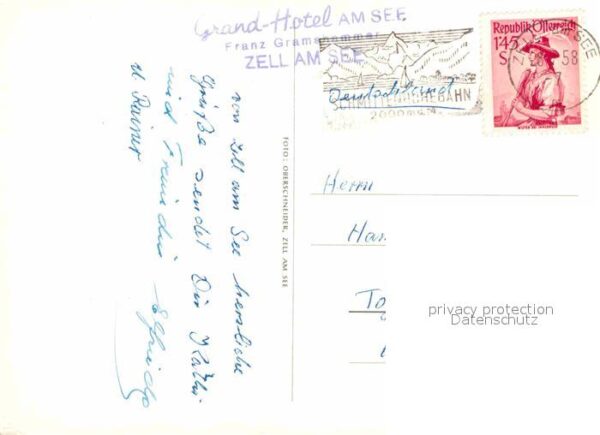 Grand-Hotel AM SEE
Franz Gramshammer
ZELL AM SEE
Republik Österreich
1.45
S
58
SCHMITTENHÖHEBAHN
2000 m
Deutschland
von Zell am See herzliche
Grüße sendet Dir Käthi
und Freundin Elfriede
u. Rainer
FOTO: OBERSCHNEIDER, ZELL AM SEE
Herrn
Han
To
privacy protection
Datenschutz